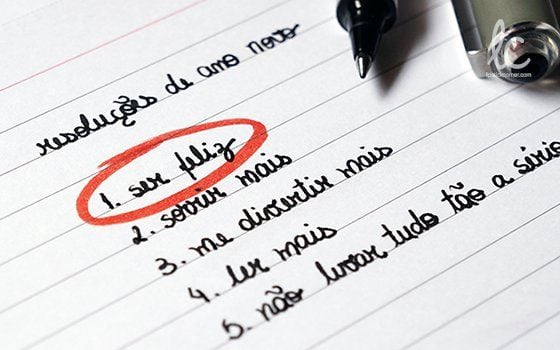 resoluções de ano novo
1. ser feliz
2. sorrir mais
3. me divertir mais
4. ler mais
5. não levar tudo tão a sério
lc
lipstickcorner.com